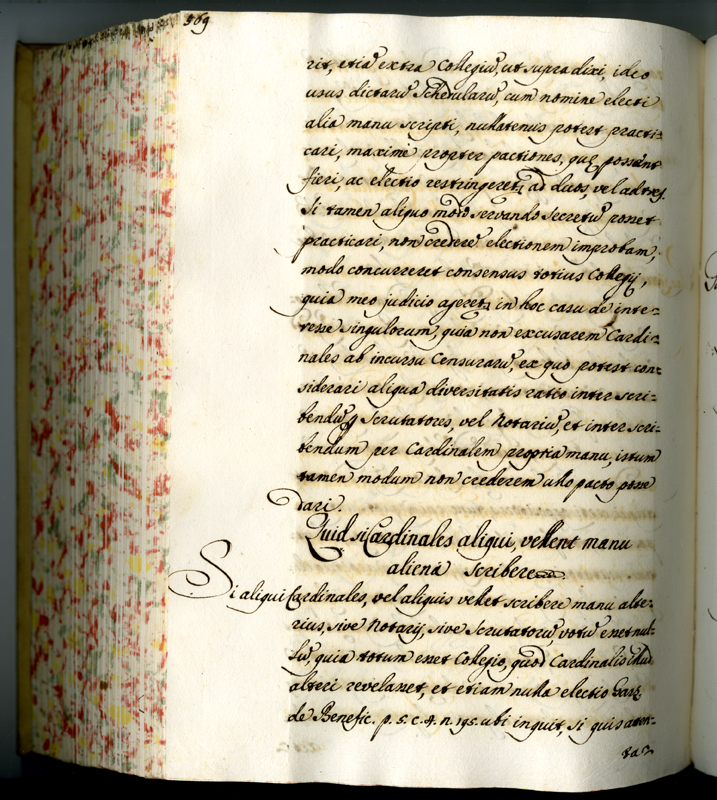 569
rit, etiã extra Collegiũ, ut supra dixi, ideo
usus dictarũ Schedularũ, cum nomine electi
alia manu scripti, nullatenus potest practi=
cari, maxime propter pactiones, quę possunt
fieri, ac electio restringeret, ad duos, vel ad tres.
Si tamen aliquo modo servando secretũ posset
practicari, non crederẽ electionem improbam,
modo concurreret consensus totius Collegij,
quia meo judicio ageret, in hoc casu de inte=
resse singulorum, quia non excusarem Cardi=
nales ab incursu Censurarũ, ex quo potest con=
siderari aliqua diversitatis ratio inter scri=
bendũ p Scrutatores, vel Notariũ, et inter scri=
bendum per Cardinalem propria manu, istum
tamen modum non crederem ullo pacto posse
dari.
Quid si Cardinales aliqui, vellent manu
alienà scribere
Si aliqui Cardinales, vel aliquis vellet scribere manu alte=
rius, sive Notarij, sive Scrutatorũ votũ esset nul=
lũ, quia totum esset Collegio, quod Cardinalis illud
alteri revelasset, et etiam nulla electio
de Benefic. p. 5. c. 4. n. 195. ubi inquit, si quis